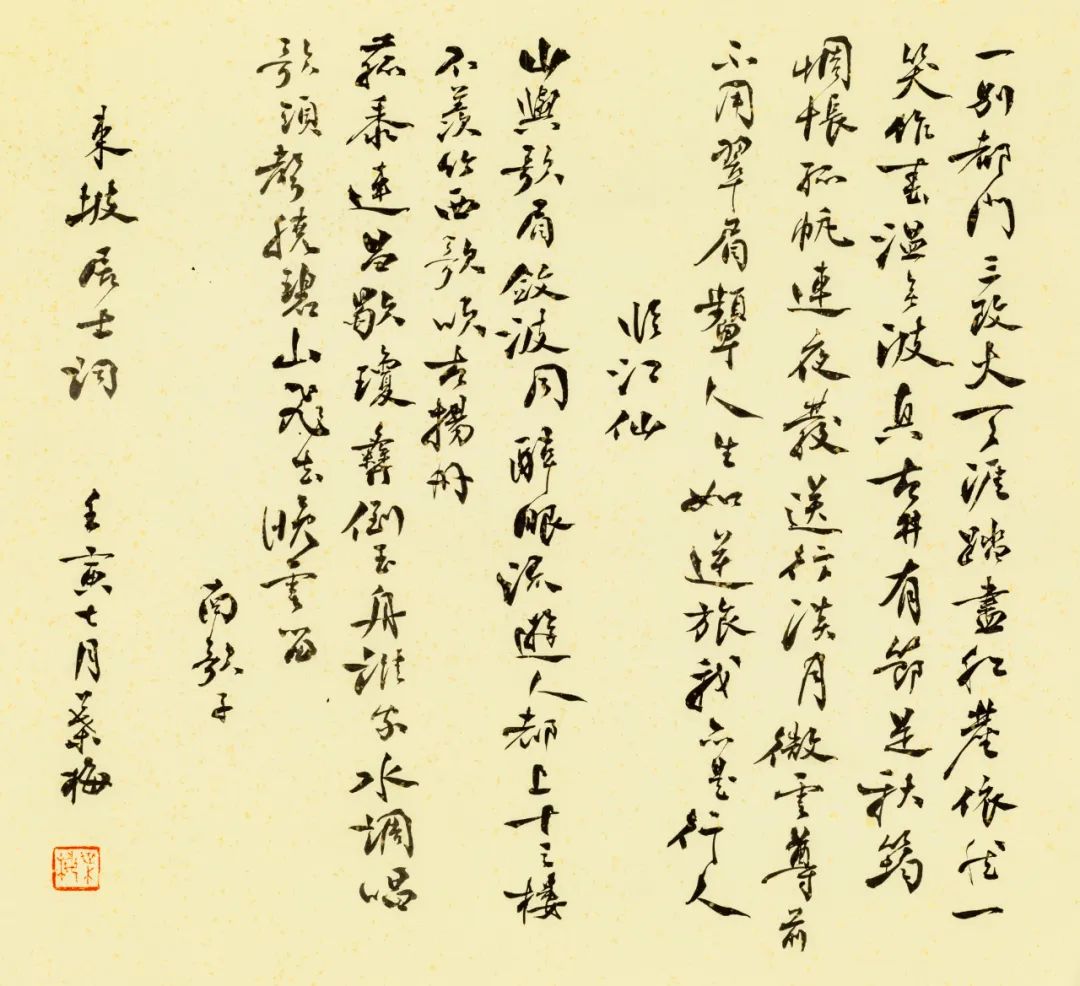 一别都門三改火天涯踏盡紅塵依然一
笑作春溫無波真古井有節是秋筠
惆悵孤帆連夜發送行淡月微雲尊前
不用翠眉顰人生如逆旅我亦是行人
臨江仙
山與歌眉斂波同醉眼流遊人都上十三樓
不羨竹西歌吹古揚州
菰黍連昌歜瓊彝倒玉舟誰家水調唱
歌頭聲繞碧山飛去晚雲留
南歌子
東坡居士詞 壬寅七月梅